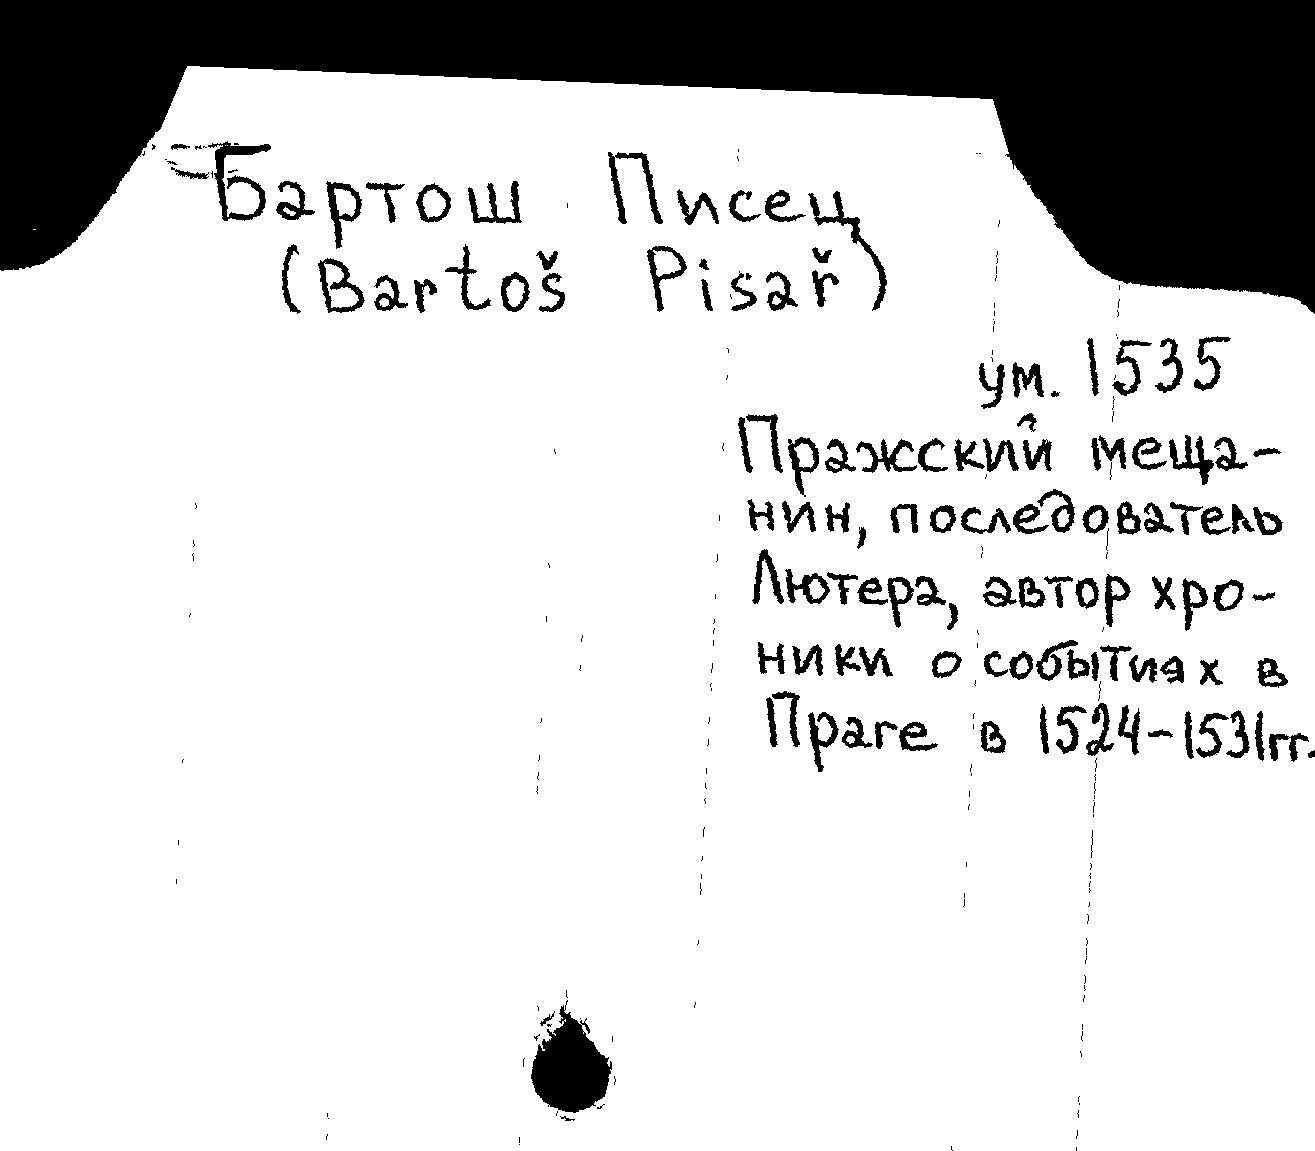 Бартош Писец
(Bartoš Pisař)
ум. 1535
Пражсский меща-
нин, последователь
Лютера, автор хро-
ники о событиях в
Праге в 1524-1531гг.